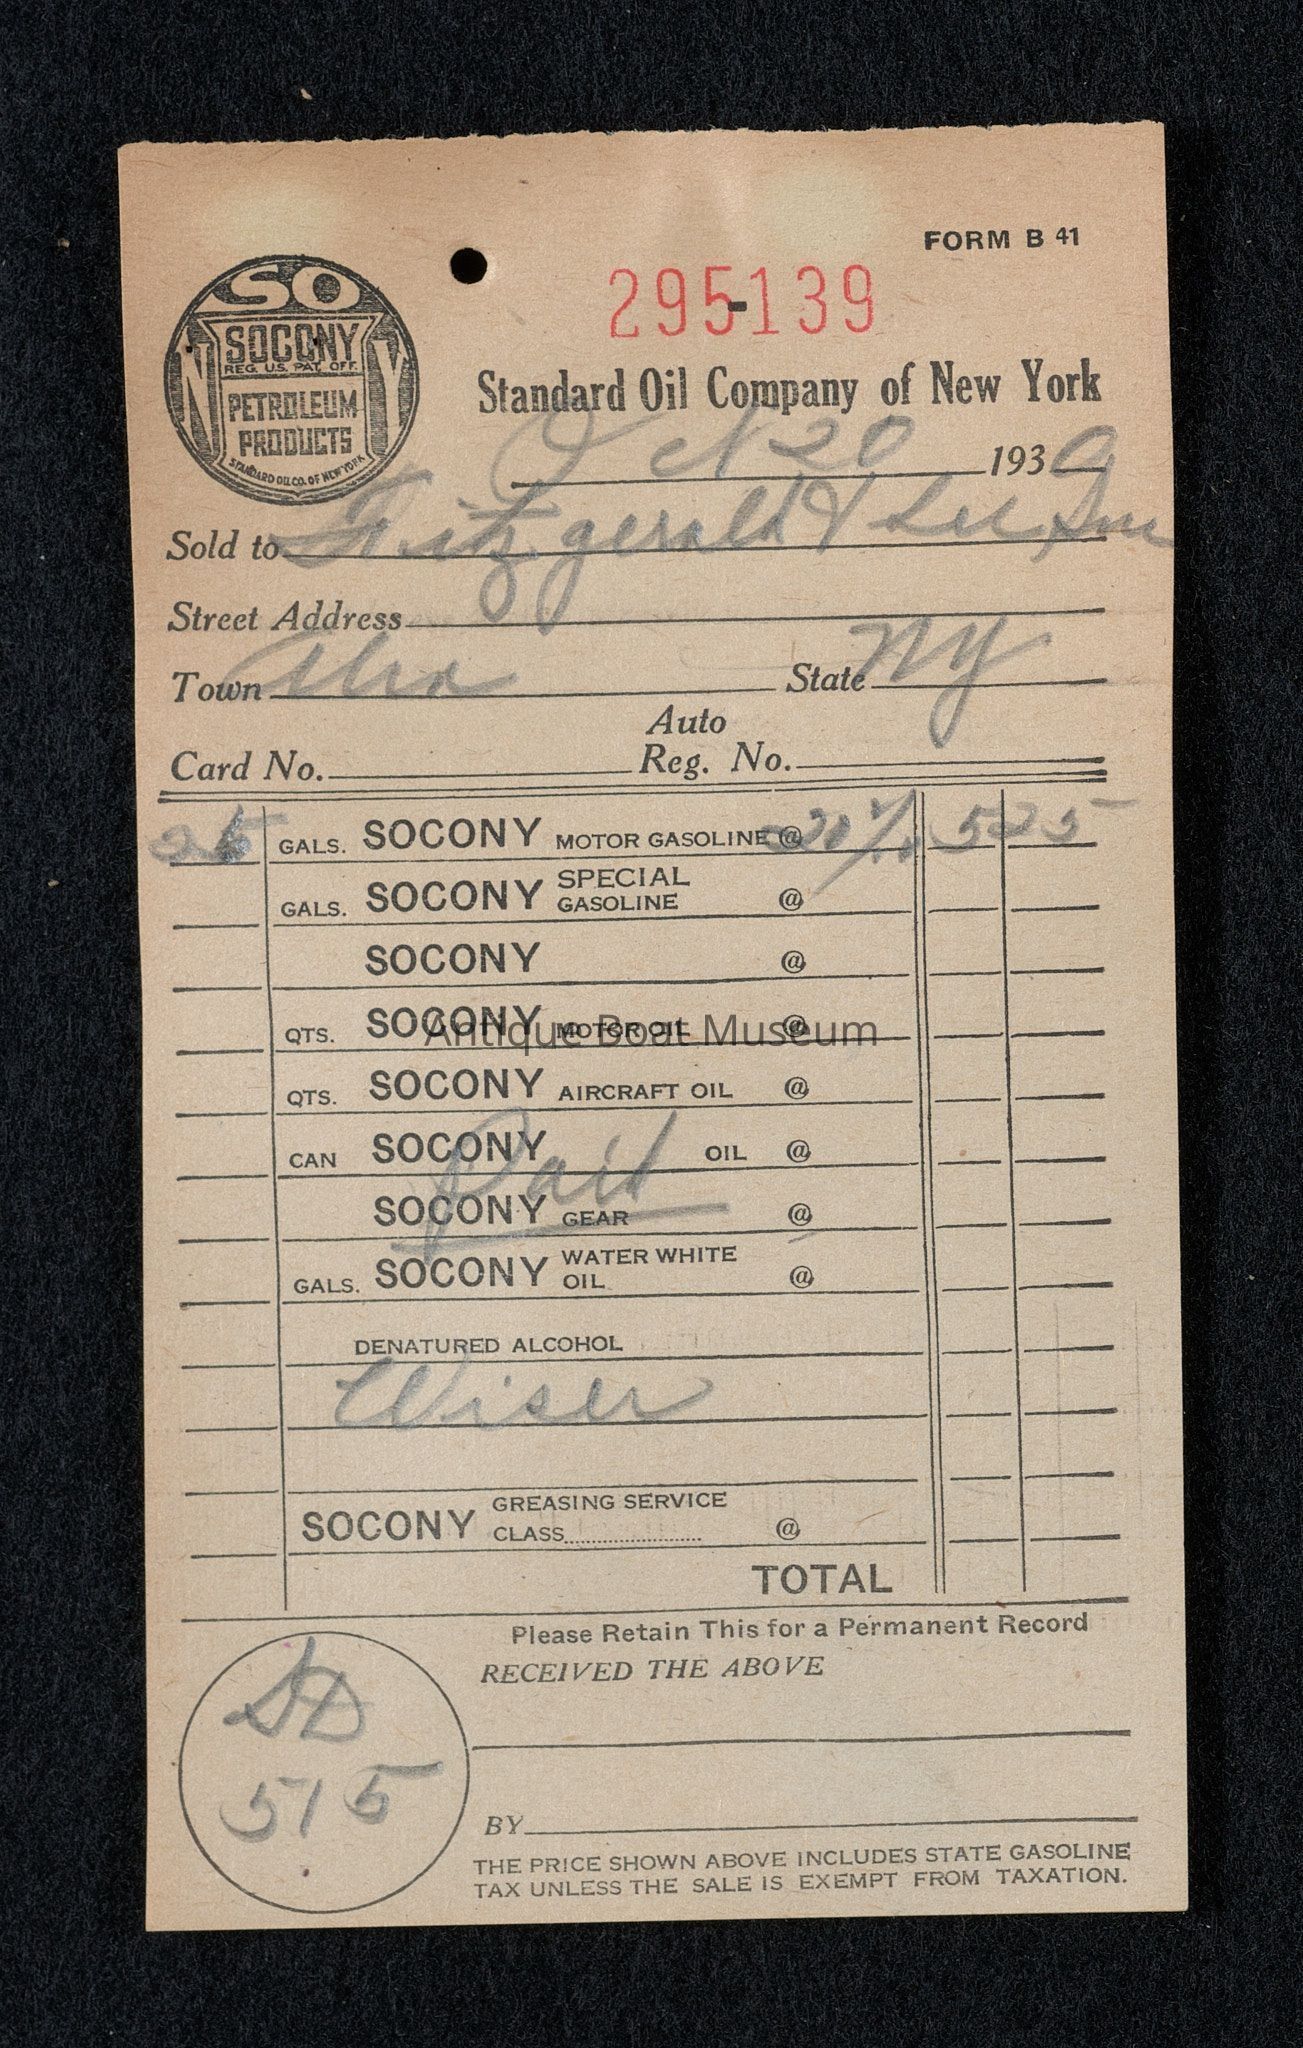 FORM B 41
295-139
SO
N Y
SOCONY
REG. U.S. PAT. OFF.
PETROLEUM
PRODUCTS
STANDARD OIL CO. OF NEW YORK
Standard Oil Company of New York
Oct 20 1939
Sold to Fitzgerald & Lee, Inc
Street Address
Town Alex State NY
Card No. Auto Reg. No.
25 GALS. SOCONY MOTOR GASOLINE @ 5 25
GALS. SOCONY SPECIAL GASOLINE @
SOCONY @
QTS. SOCONY MOTOR OIL @
Antique Boat Museum
QTS. SOCONY AIRCRAFT OIL @
CAN SOCONY OIL @
Paid
SOCONY GEAR @
GALS. SOCONY WATER WHITE OIL @
DENATURED ALCOHOL
Wiser
SOCONY GREASING SERVICE CLASS @
TOTAL
Please Retain This for a Permanent Record
RECEIVED THE ABOVE
515
BY
THE PRICE SHOWN ABOVE INCLUDES STATE GASOLINE
TAX UNLESS THE SALE IS EXEMPT FROM TAXATION.